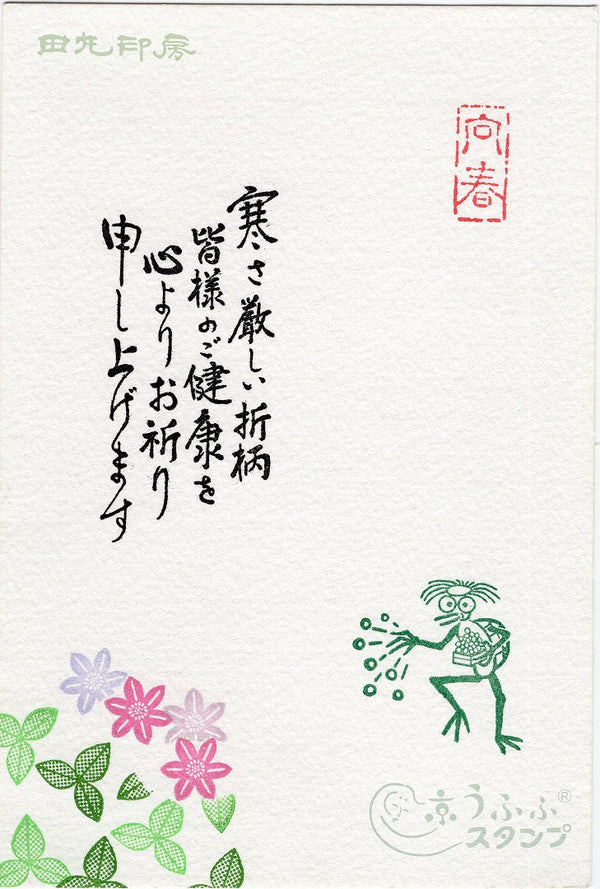 田丸印房
向春
寒さ厳しい折柄
皆様のご健康を
心よりお祈り
申し上げます
京うふふ®
スタンプ